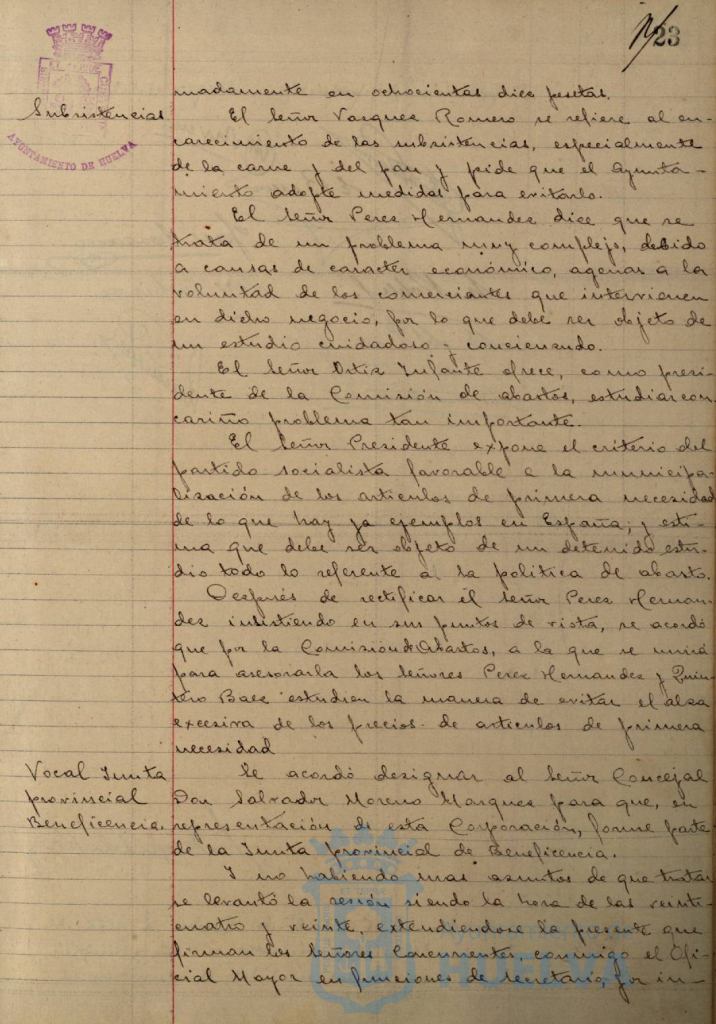 23
madamente en ochocientas diez pesetas.
Subsistencias
El Señor Vazquez Romero se refiere al en-
carecimiento de las subsistencias, especialmente
de la carne y del pan y pide que el Ayunta-
miento adopte medidas para evitarlo.
El Señor Perez Hernandez dice que se
trata de un problema muy complejo, debido
a causas de caracter económico, agenas a la
voluntad de los comerciantes que intervienen
en dicho negocio, por lo que debe ser objeto de
un estudio cuidadoso y concienzudo.
El Señor Ortiz Infante ofrece, como presi-
dente de la Comisión de abastos, estudiar con
cariño problema tan importante.
El Señor Presidente expone el criterio del
partido socialista favorable a la municipa-
lización de los articulos de primera necesidad
de lo que hay ya ejemplos en España; y esti-
ma que debe ser objeto de un detenido estu-
dio todo lo referente a la politica de abasto.
Después de rectificar el Señor Perez Hernan-
dez insistiendo en sus puntos de vista, se acordó
que por la Comisión de Abastos, a la que se unirá
para asesorarla los Señores Perez Hernandez y Quin-
tero Baez estudien la manera de evitar el alza
excesiva de los precios de articulos de primera
necesidad
Vocal Junta
provincial
Beneficencia.
Se acordó designar al Señor Concejal
Don Salvador Moreno Marquez para que, en
representación de esta Corporación, forme parte
de la Junta provincial de Beneficencia.
Y no habiendo mas asuntos de que tratar
se levantó la sesión siendo la hora de las veinti-
cuatro y veinte, extendiendose la presente que
firman los Señores Concurrentes, conmigo el Ofi-
cial Mayor en funciones de Secretario, por in-
AYUNTAMIENTO DE HUELVA
HUELVA